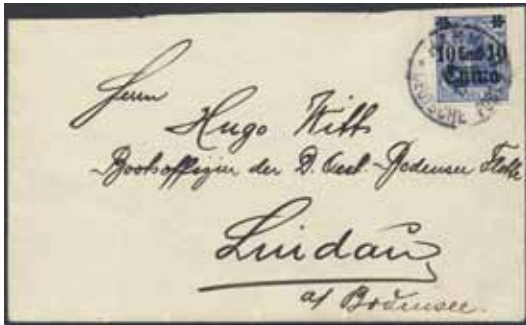 10 Cent 10
China
DEUTSCHE
Herrn
Hugo Witts
Bootsoffizier der D. Oest. Bodensee Flotte
Lindau
a/ Bodensee.